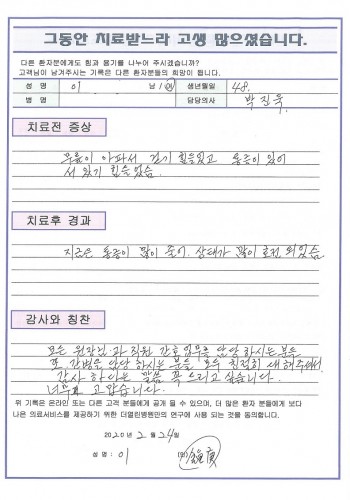 그동안 치료받느라 고생 많으셨습니다.
다른 환자분에게도 힘과 용기를 나누어 주시겠습니까?
고객님이 남겨주시는 기록은 다른 환자분들의 희망이 됩니다.
성 명 이 남 / 여 생년월일 48.
병 명 담당의사 박진욱
치료전 증상
무릎이 아파서 걷기 힘들었고 통증이 있어
서 있기 힘들었습.
치료후 경과
지금은 통증이 많이 줄어. 상태가 많이 호전 되었습
감사와 칭찬
모든 원장님과 직원 간호 업무를 담당 하시는 분들
또 간병을 담당 하시는 분들 모두 친절히 대해주셔서
감사 하다는 말씀 꼭 드리고 싶습니다.
너무 고맙습니다.
위 기록은 온라인 또는 다른 고객 분들에게 공개 될 수 있으며, 더 많은 환자 분들에게 보다
나은 의료서비스를 제공하기 위한 더열린병원만의 연구에 사용 되는 것을 동의합니다.
2020년 2월 24일
성 명 : 이 (인)